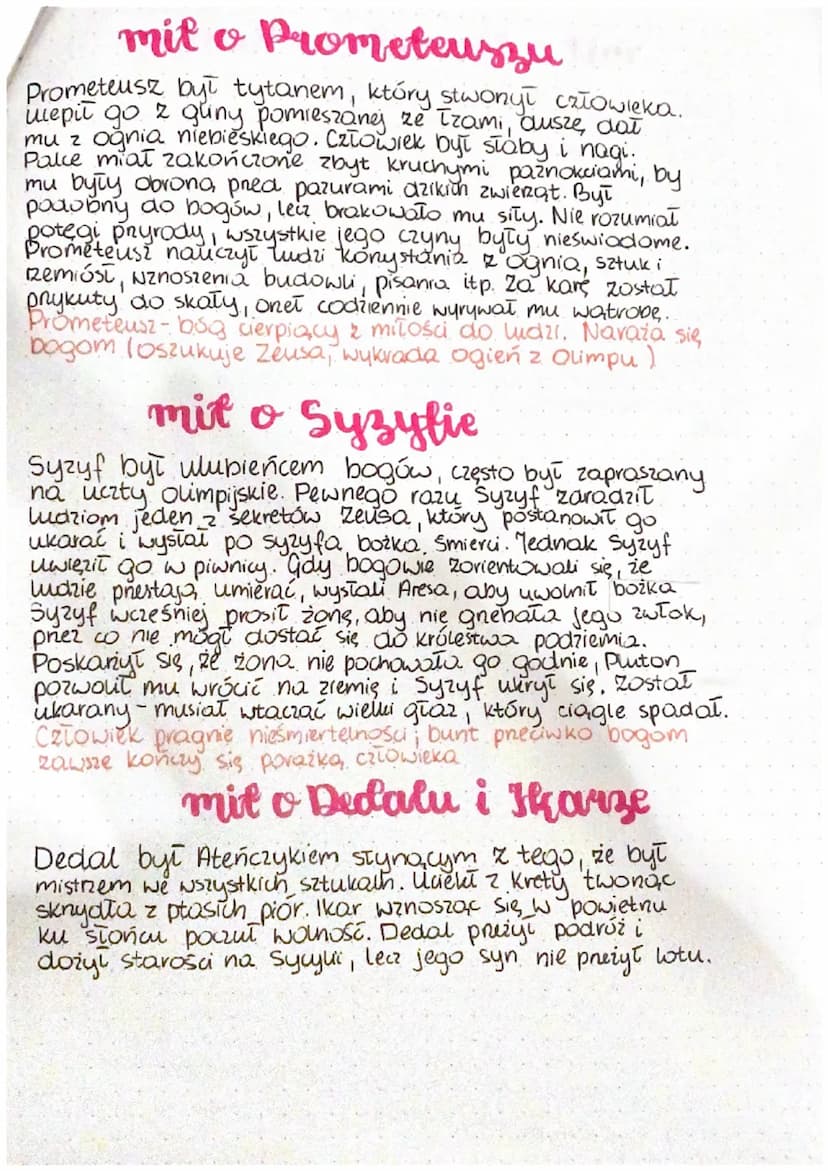 mit o Prometeuszu
Prometeusz był tytanem, który stworzył człowieka.
Ulepił go z gliny pomieszanej ze łzami, duszę dał
mu z ognia niebieskiego. Człowiek był słaby i nagi.
Palce miał zakończone zbyt kruchymi paznokciami, by
mu były obroną przed pazurami dzikich zwierząt. Był
podobny do bogów, lecz brakowało mu siły. Nie rozumiał
potęgi przyrody, wszystkie jego czyny były nieświadome.
Prometeusz nauczył ludzi korzystania z ognia, sztuk i
rzemiosł, wznoszenia budowli, pisania itp. Za karę został
przykuty do skały, orzeł codziennie wyrywał mu wątrobę.
Prometeusz - bóg cierpiący z miłości do ludzi. Naraża się
bogom (oszukuje Zeusa, wykrada ogień z Olimpu)
mit o Syzyfie
Syzyf był ulubieńcem bogów, często był zapraszany
na uczty olimpijskie. Pewnego razu Syzyf zdradził
ludziom jeden z sekretów Zeusa, który postanowił go
ukarać i wysłał po syzyfa bożka śmierci. Jednak Syzyf
uwięził go w piwnicy. Gdy bogowie zorientowali się, że
ludzie przestają umierać, wysłali Aresa, aby uwolnił bożka
Syzyf wcześniej prosił żonę, aby nie grzebała jego zwłok,
przez co nie mógł dostać się do królestwa podziemia.
Poskarżył się, że żona nie pochowała go godnie, Pluton
pozwolił mu wrócić na ziemię i Syzyf ukrył się. Został
ukarany - musiał wtaczać wielki głaz, który ciągle spadał.
Człowiek pragnie nieśmiertelności; bunt przeciwko bogom
zawsze kończy się porażką człowieka
mit o Dedalu i Ikarze
Dedal był Ateńczykiem słynącym z tego, że był
mistrzem we wszystkich sztukach. Uciekł z Krety tworząc
skrzydła z ptasich piór. Ikar wznosząc się w powietrzu
ku słońcu poczuł wolność. Dedal przeżył podróż i
dożył starości na Sycylii, lecz jego syn nie przeżył lotu.